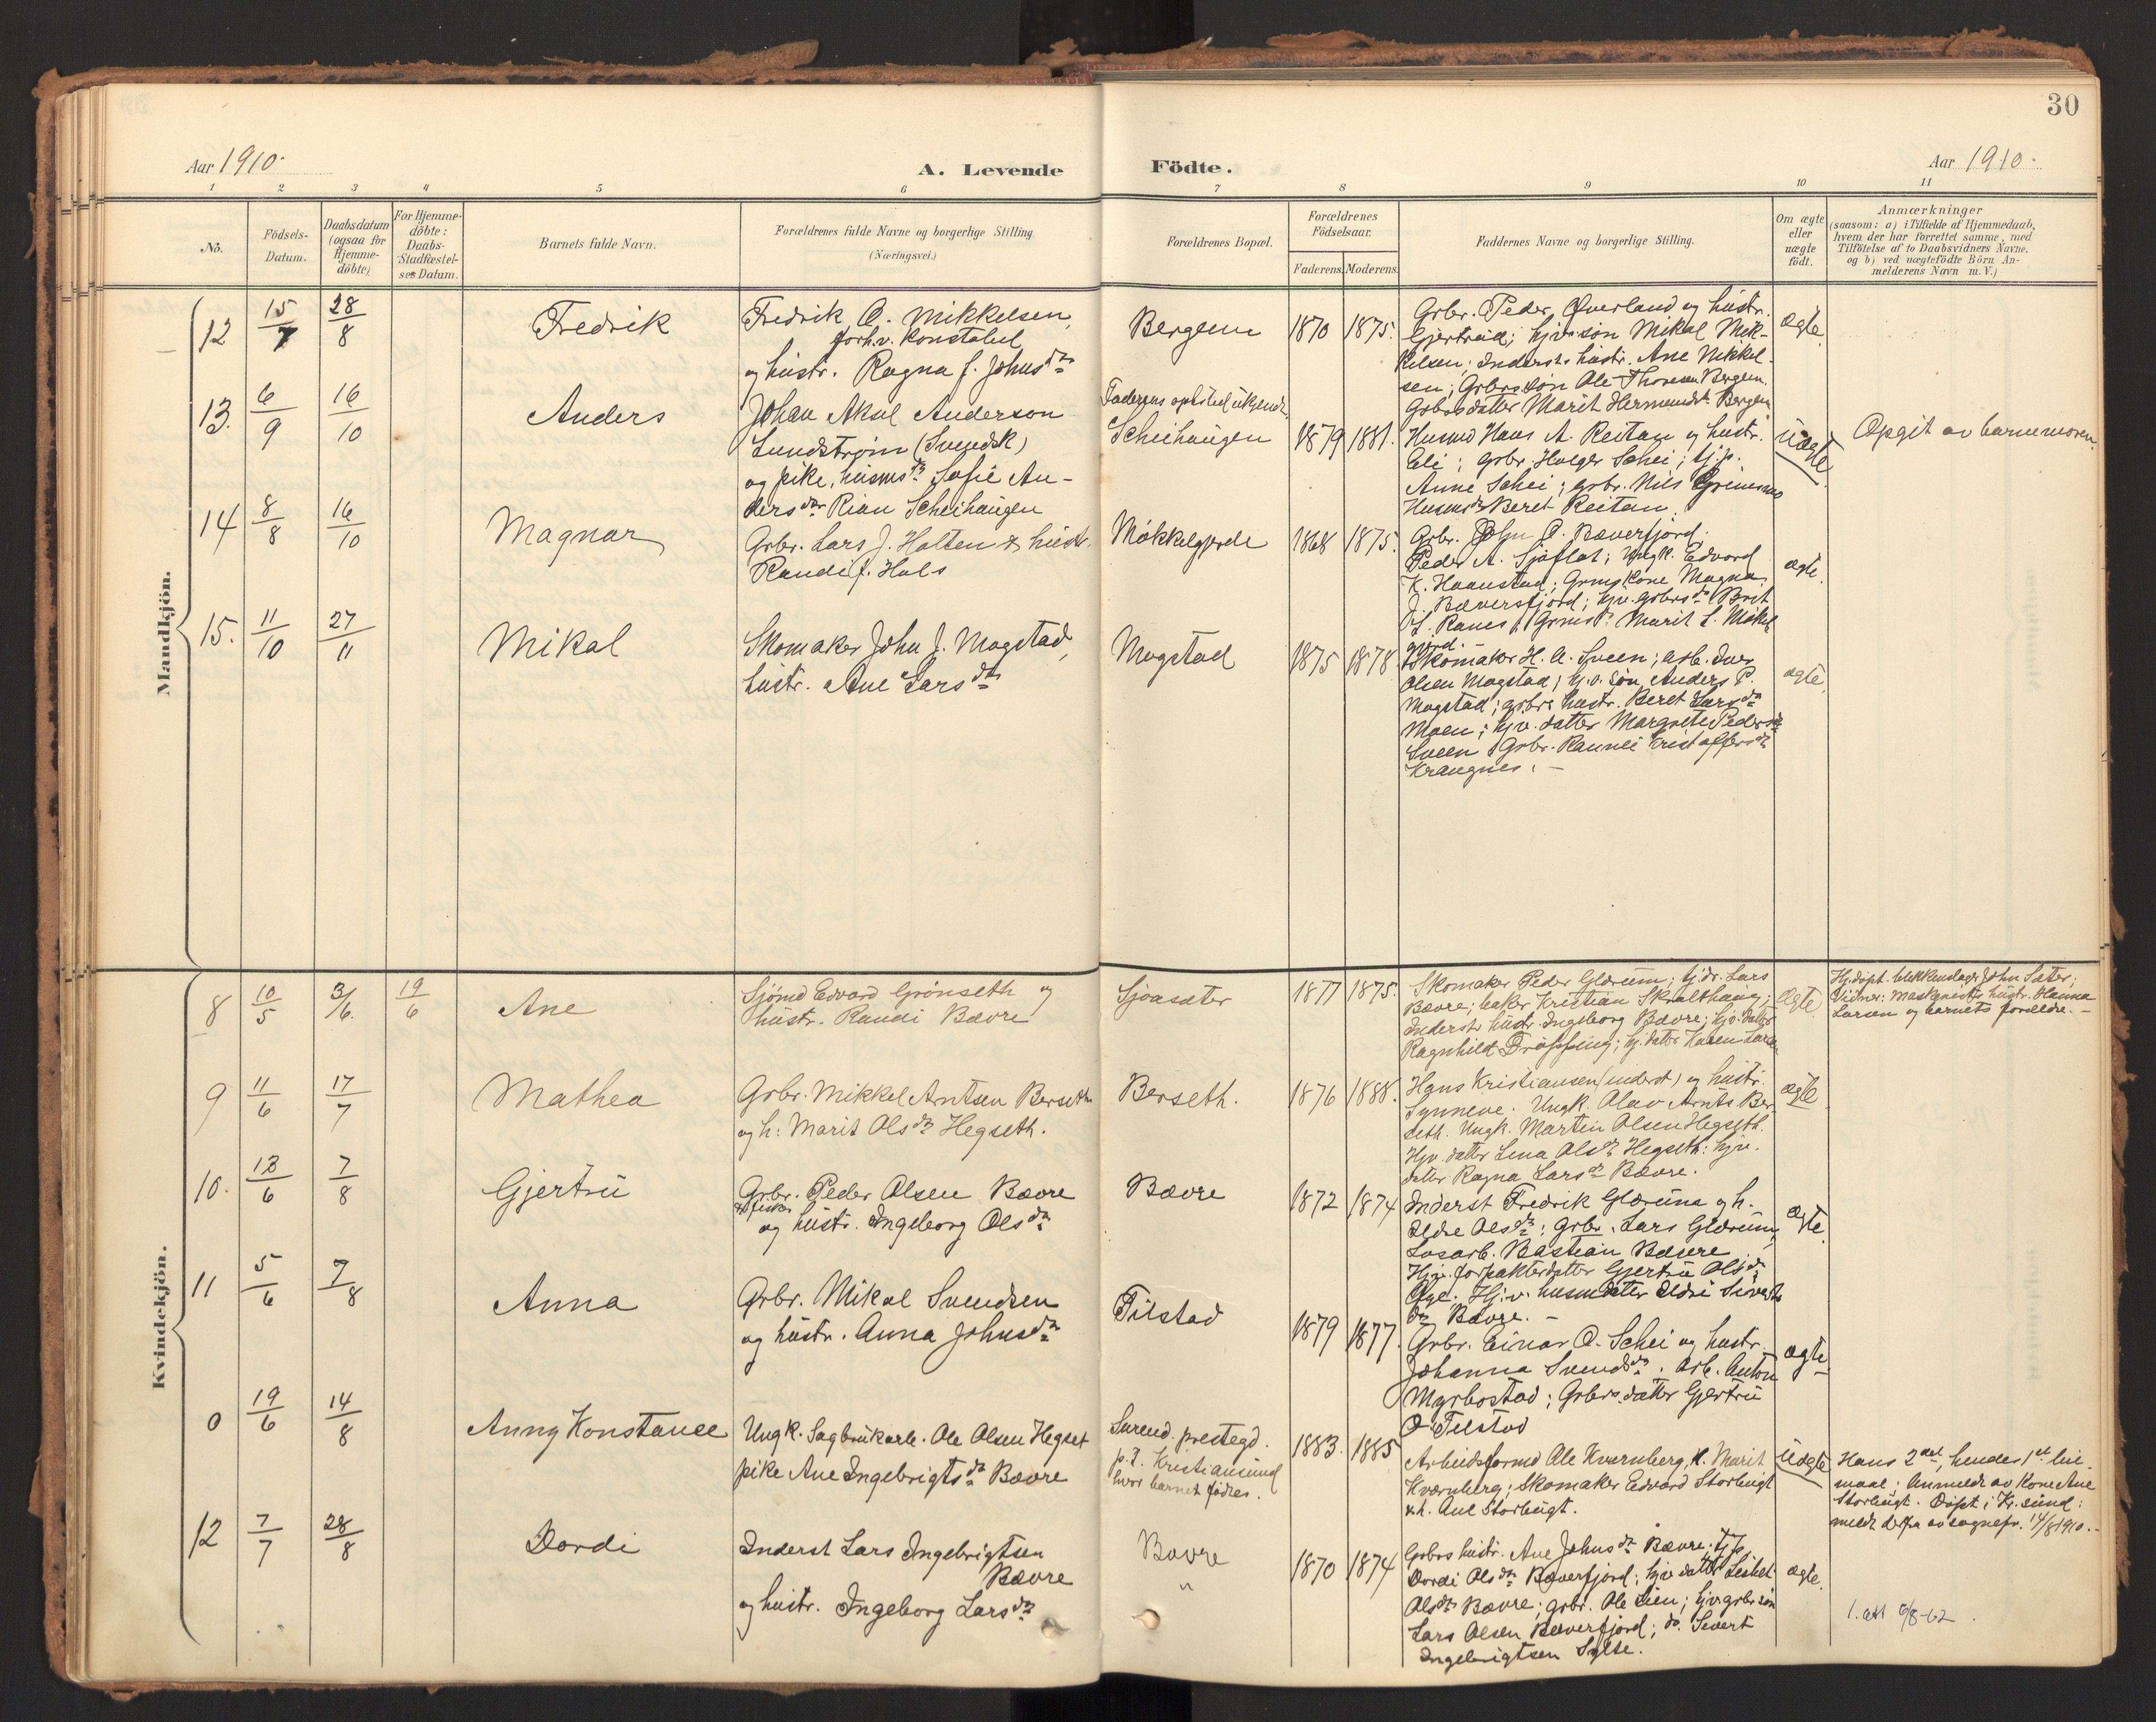 30
Aar 1910.
A. Levende
Födte.
Aar 1910.
1 2 3 4 5 6 7 8 9 10 11
No.
Födsels-
Datum.
Daabsdatum
(ogsaa for
Hjemme-
döbte)
For Hjemme-
döbte:
Daabs-
Stadfæstel-
ses Datum.
Barnets fulde Navn.
Forældrenes fulde Navne og borgerlige Stilling
(Næringsvei.)
Forældrenes Bopæl.
Forældrenes
Födselsaar.
Faderens. Moderens.
Faddernes Navne og borgerlige Stilling.
Om ægte
eller
uægte
födt.
Anmærkninger
(saasom: a) i Tilfælde af Hjemmedaab,
hvem der har forrettet samme, med
Tilföielse af to Daabsvidners Navne.
og b) ved uægtefödte Börn An-
melderens Navn m. V.)
Mandkjön.
12 15/7 28/8
Fredrik
Fredrik A. Mikkelsen
forh.v. Konstabel
og hustr. Ragna f. Johnsdtr
Bergem
1870 1875.
Grbr. Peder Øverland og hustr.
Gjertrud; hjv. søn Mikal Mik-
kelsen; Inderst hustr. Ane Mikkel-
sen; Grbrs søn Ole Thoresen Bergem.
Grbrs datter Marit Hermundsdtr Bergem
ægte
13. 6/9 16/10
Anders
Johan Aksel Anderson
Lundstrøm (Svensk)
og pike, husmsdtr Sofie An-
dersdtr Rian Scheihaugen
Faderens opholdsted ukjendt
Scheihaugen
1879 1881.
Husmd Hans A. Reitan og hustr.
Eli; grbr. Holger Schei; tj.p.
Anne Schei; grbr. Nils Grimsmo
Husmsdtr Beret Reitan.
uægte
Opgit av barnemoren.
14 8/8 16/10
Magnar
Grbr. Lars J. Holten & hustr.
Randi f. Hals
Mokkelgjerde
1868 1875.
Grbr. John O. Bæverfjord;
Peder A. Sjøflot; Ungk. Edvard
K. Haanstad; Grmskone Magna
J. Bæverfjord; hjv. grbrsdtr Brit
L. Ranes; Grmsdtr Marit L. Mokkel-
gjerd.
ægte.
15. 11/10 27/11
Mikal
Skomaker John J. Mogstad,
hustr. Ane Larsdtr
Mogstad
1875 1878.
Skomaker H. A. Sveen; arb. Iver
Olsen Mogstad; hj.v. søn Anders P.
Mogstad; grbrs hustr. Beret Larsdtr
Moen; hjv. datter Margrete Pedersdtr
Sveen Grbr. Rannei Kristoffersdtr
Krangnes. –
ægte.
Kvindekjön.
8 10/5 3/6. 19/6
Ane
Sjömd Edvard Grönseth og
hustr. Randi Bævre
Sjoasæter
1877 1875.
Skomaker Peder Glærum; tj.dr. Lars
Bævre; baker Kristian Skralthaug;
Inderst hustr. Ingeborg Bævre; hjv. datter
Ragnhild Drøpping; hj. datter Karen Larsen
ægte
Hj.døpt. klokkerlagr John Sæter;
Vidner: maskinmstr hustr. Hanna
Larsen og barnets forældre. –
9 11/6 17/7
Mathea
Grbr. Mikkel Arntsen Berseth
og h: Marit Olsdtr Hegseth.
Berseth.
1876 1888.
Hans Kristiansen (inderst) og hustr.
Synneve. Ungk. Olav Arnts Ber-
seth. Ungk. Martin Olsen Hegseth.
Hjv. datter Lina Olsdtr Hegseth: hjv.
datter Ragna Larsdtr Bævre.
ægte
10. 13/6 7/8
Gjertru
Grbr. Peder Olsen Bævre
& fisker
og hustr. Ingeborg Olsdtr
Bævre
1872 1874
Inderst Fredrik Glærum og h.
Eldre Olsdtr; Grbr. Lars Glærum,
Løsarb. Bastian Bævre
Hjv. forpakterdatter Gjertru Olsdtr
Øye. Hj.v. husmdatter Eldri Sivert-
dtr Bævre. –
ægte.
11 5/6 7/8
Anna
Grbr. Mikal Svendsen
og hustr. Anna Johnsdtr
Tilstad
1879 1877.
Grbr. Einar O. Schei og hustr.
Johanna Svendsdtr. Arb. Anton
Myrbostad; Grbrs datter Gjertru
O. Tilstad
ægte.
0 19/6 14/8
Anny Konstance
Ungk. Sagbrukarb. Ole Olsen Hegset
pike Ane Ingebrigtsdtr Bævre
Surend. prestegd.
p.t. Kristiansund
hvor barnet födtes.
1883. 1885
Arbeidsformd Ole Kvernberg, h. Marit
Kværnberg; Skomaker Edvard Storbugt
& h. Ane Storbugt.
uægte
Hans 2det, hendes 1ste leie-
maal; Anmeldt av Kone Ane
Storbugt. Døpt i Kr.sund:
meldt derfra av sognepr. 14/8 1910. –
12 7/7 28/8
Dordi
Inderst Lars Ingebrigtsen
Bævre
og hustr. Ingeborg Larsdtr
Bævre
"
1870 1874
Grbrs hustr. Ane Johnsdtr Bævre. tj.p.
Dordi Olsdtr Bæverfjord; hjv. datter Lisbet
Olsdtr Bævre; grbr. Ole Lien; hjv. grbr. søn
Lars Olsen Bæverfjord; do. Sivert
Ingebrigtsen Sylte.
ægte.
1. att 6/8-62.